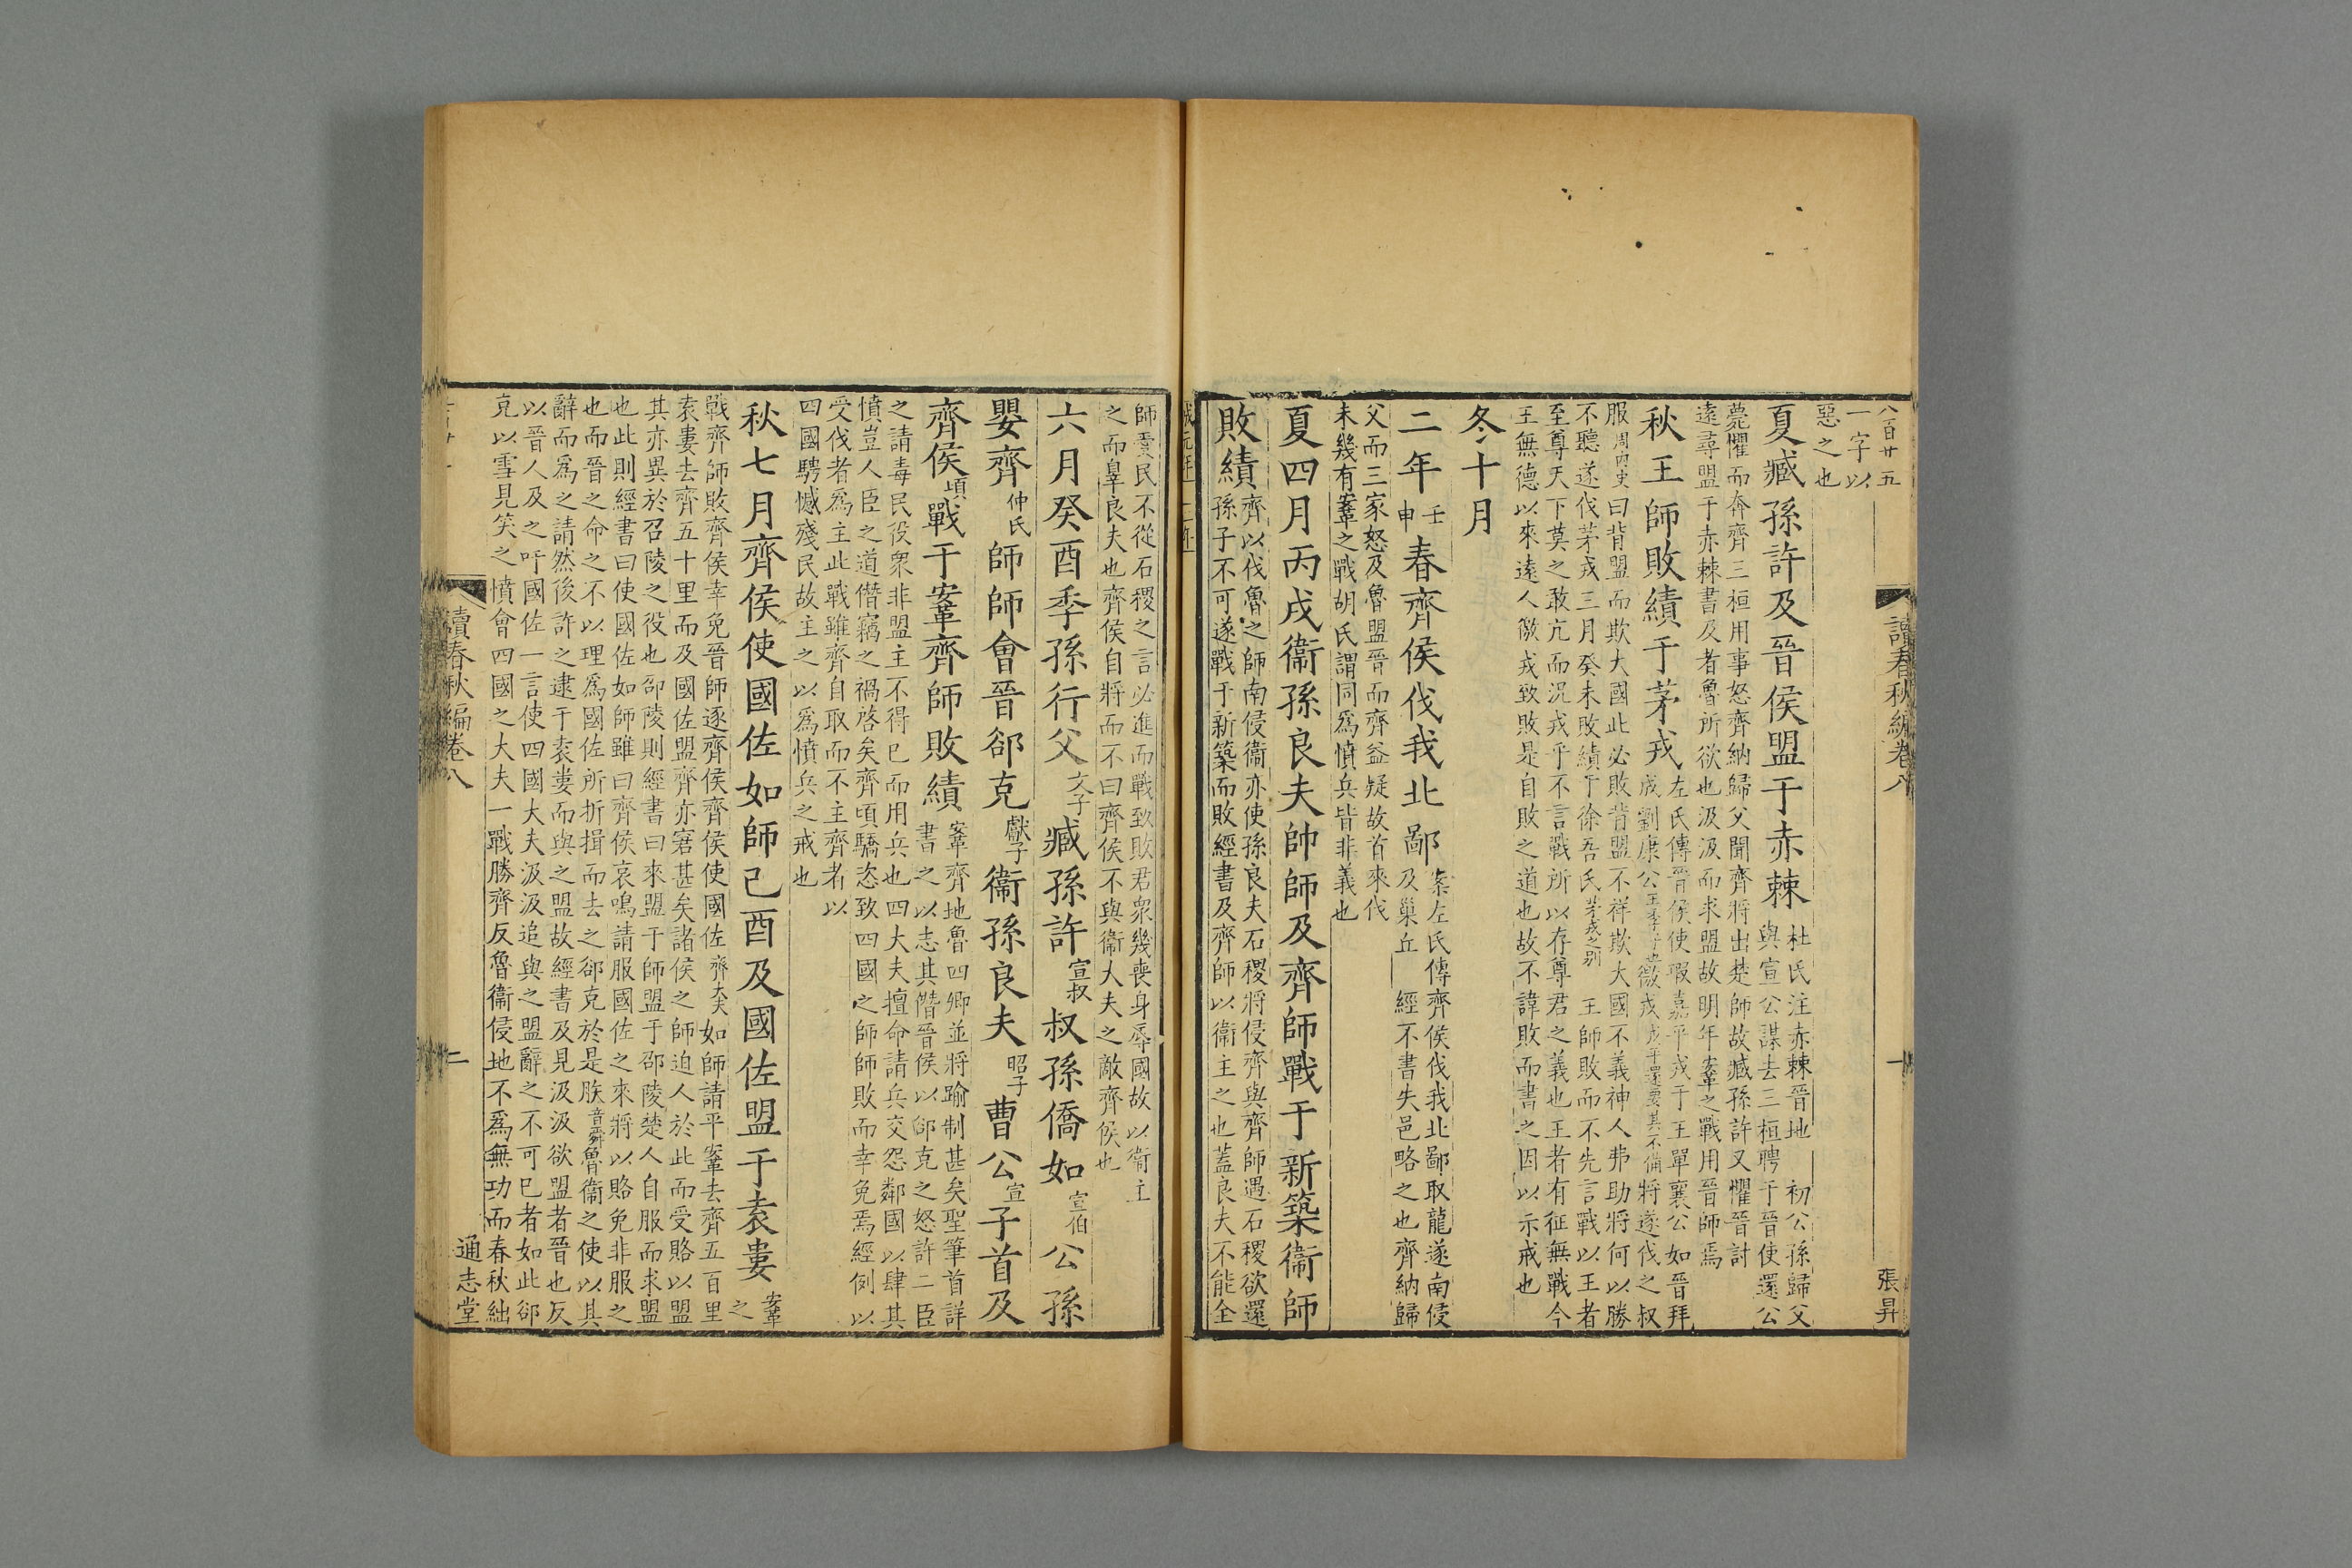 八百廿五
讀春秋編卷八
一
張昇
一字以
惡之也
夏臧孫許及晉侯盟于赤棘杜氏注赤棘晉地 初公孫歸父
與宣公謀去三桓聘于晉使還公
薨懼而奔齊三桓用事怒齊納歸父聞齊將出楚師故臧孫許又懼晉討
遠尋盟于赤棘書及者魯所欲也汲汲而求盟故明年鞌之戰用晉師焉
秋王師敗績于茅戎左氏傳晉侯使瑕嘉平戎于王單襄公如晉拜
成劉康公王季子也徼戎戎平還要其不備將遂伐之叔
服周內史曰背盟而欺大國此必敗背盟不祥欺大國不義神人弗助將何以勝
不聽遂伐茅戎三月癸未敗績于徐吾氏茅戎之別 王師敗而不先言戰以王者
至尊天下莫之敢亢而況戎乎不言戰所以存尊君之義也王者有征無戰今
王無德以來遠人徼戎致敗是自敗之道也故不諱敗而書之因以示戒也
冬十月
二年壬申春齊侯伐我北鄙案左氏傳齊侯伐我北鄙取龍遂南侵
及巢丘 經不書失邑略之也齊納歸
父而三家怒及魯盟晉而齊益疑故首來伐
未幾有鞌之戰胡氏謂同爲憤兵皆非義也
夏四月丙戌衞孫良夫帥師及齊師戰于新築衞師
敗績齊以伐魯之師南侵衞亦使孫良夫石稷將侵齊與齊師遇石稷欲還
孫子不可遂戰于新築而敗經書及齊師以衞主之也蓋良夫不能全
師愛民不從石稷之言必進而戰致敗君衆幾喪身辱國故以衞主
之而辠良夫也齊侯自將而不曰齊侯不與衞大夫之敵齊侯也
六月癸酉季孫行父文子臧孫許宣叔叔孫僑如宣伯公孫
嬰齊仲氏師師會晉郤克獻子衞孫良夫昭子曹公宣子首及
齊侯頃戰于鞌齊師敗績鞌齊地魯四卿並將踰制甚矣聖筆首詳
書之以志其僭晉侯以郤克之怒許二臣
之請毒民役衆非盟主不得已而用兵也四大夫擅命請兵交怨鄰國以肆其
憤豈人臣之道僭竊之禍啓矣齊頃驕恣致四國之師師敗而幸免焉經例以
受伐者爲主此戰雖齊自取而不主齊者以
四國騁憾殘民故主之以爲憤兵之戒也
秋七月齊侯使國佐如師己酉及國佐盟于袁婁鞌之
戰齊師敗齊侯幸免晉師逐齊侯齊侯使國佐齊大夫如師請平鞌去齊五百里
袁婁去齊五十里而及國佐盟齊亦窘甚矣諸侯之師迫人於此而受賂以盟
其亦異於召陵之役也卲陵則經書曰來盟于師盟于卲陵楚人自服而求盟
也此則經書曰使國佐如師雖曰齊侯哀鳴請服國佐之來將以賂免非服之
也而晉之命之不以理爲國佐所折揖而去之郤克於是䀢音舜魯衞之使以其
辭而爲之請然後許之逮于袁婁而與之盟故經書及見汲汲欲盟者晉也反
以晉人及之吁國佐一言使四國大夫汲汲追與之盟辭之不可已者如此郤
克以雪見笑之憤會四國之大夫一戰勝齊反魯衞侵地不爲無功而春秋絀
讀春秋編卷八
二
通志堂